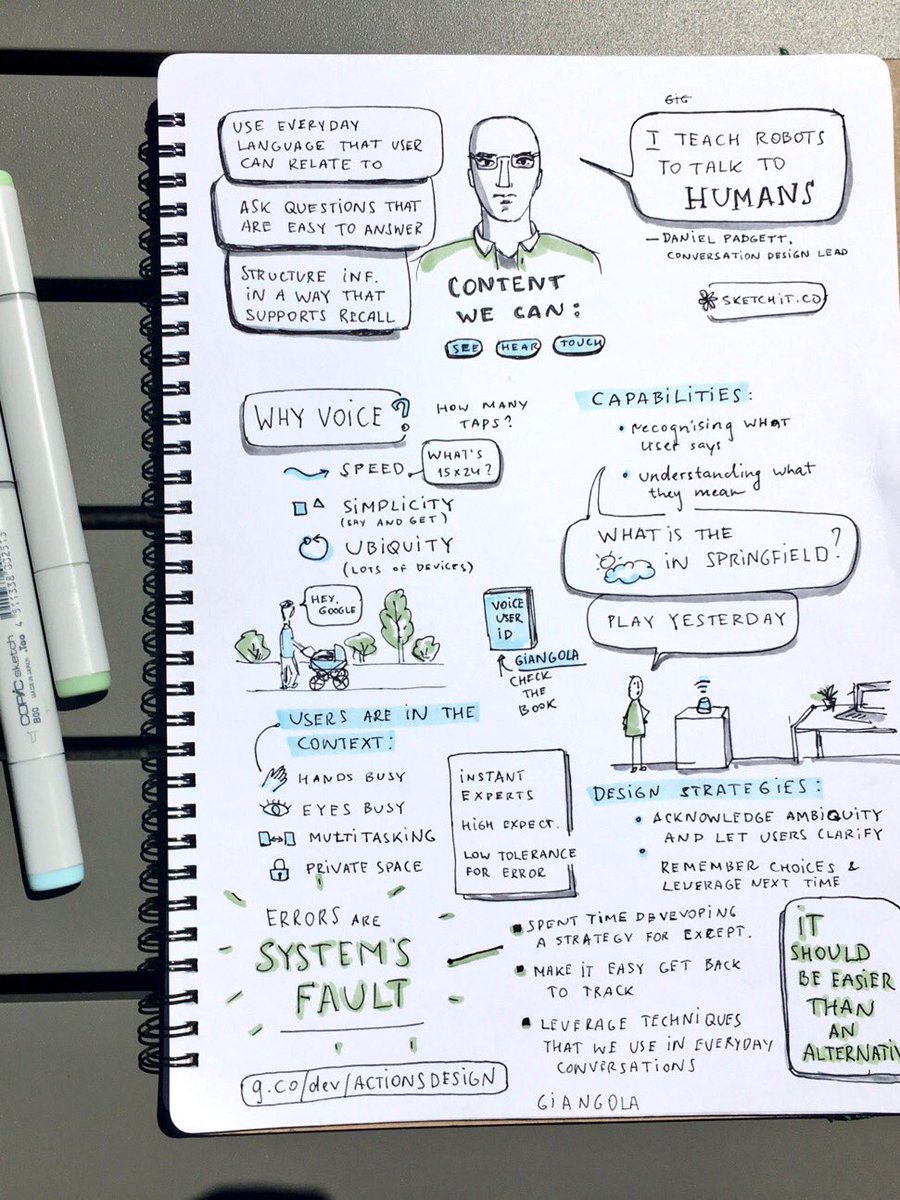 USE EVERYDAY
LANGUAGE THAT USER
CAN RELATE TO
ASK QUESTIONS THAT
ARE EASY TO ANSWER
STRUCTURE INF.
IN A WAY THAT
SUPPORTS RECALL
I TEACH ROBOTS
TO TALK TO
HUMANS
— DANIEL PADGETT,
CONVERSATION DESIGN LEAD
SKETCHIT.CO
CONTENT
WE CAN:
SEE HEAR TOUCH
WHY VOICE?
HOW MANY
TAPS?
SPEED
WHAT'S
15x24?
SIMPLICITY
(SAY AND GET)
UBIQUITY
(LOTS OF DEVICES)
HEY,
GOOGLE
VOICE
USER
ID
GIANGOLA
CHECK
THE
BOOK
CAPABILITIES:
• recognising WHAT
user says
• understanding what
they mean
WHAT IS THE
IN SPRINGFIELD?
PLAY YESTERDAY
USERS ARE IN THE
CONTEXT:
HANDS BUSY
EYES BUSY
MULTITASKING
PRIVATE SPACE
INSTANT
EXPERTS
HIGH EXPECT.
LOW TOLERANCE
FOR ERROR
DESIGN STRATEGIES:
• ACKNOWLEDGE AMBIQUITY
AND LET USERS CLARIFY
• REMEMBER CHOICES &
LEVERAGE NEXT TIME
ERRORS ARE
SYSTEM'S
FAULT
SPENT TIME DEVEVOPING
A STRATEGY FOR EXCEPT.
MAKE IT EASY GET BACK
TO TRACK
LEVERAGE TECHNIQUES
THAT WE USE IN EVERYDAY
CONVERSATIONS
IT
SHOULD
BE EASIER
THAN
AN
ALTERNATIV
g.co/dev/ACTIONSDESIGN
GIANGOLA
COPIC sketch
B00